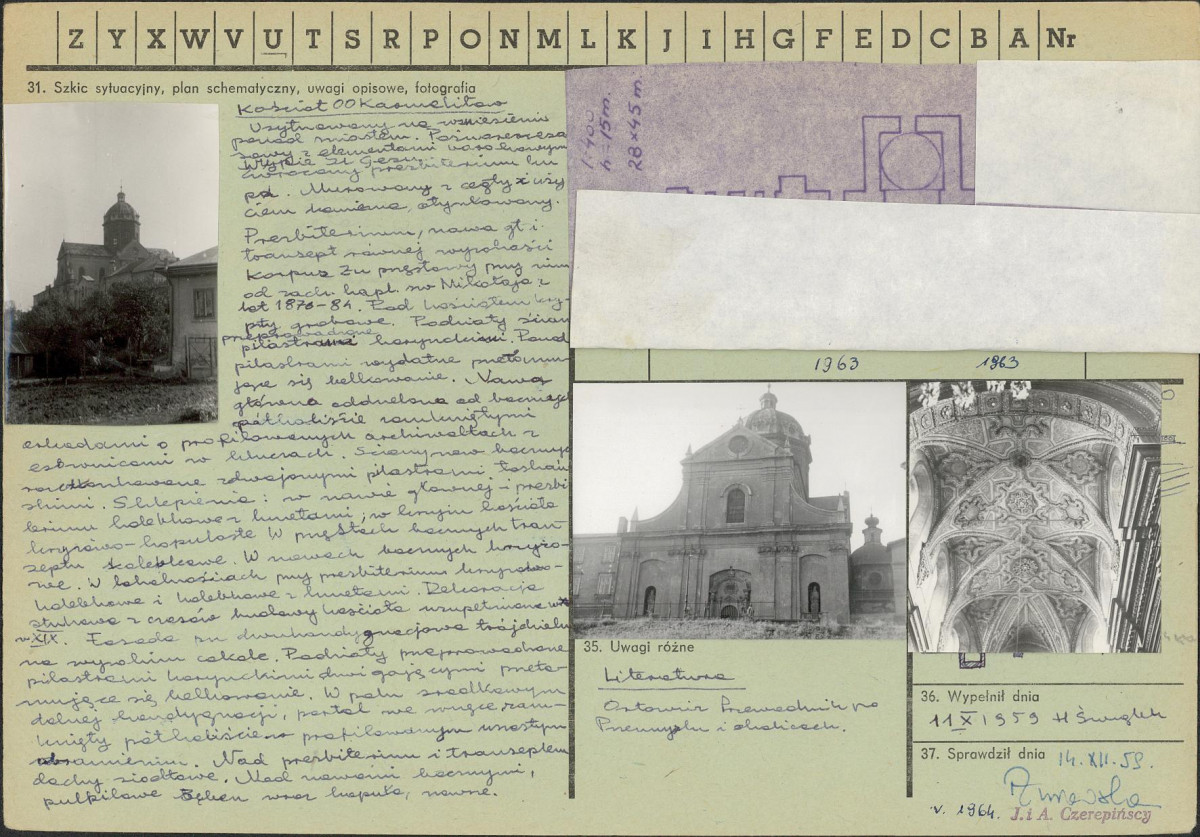 Z Y X W V U T S R P O N M L K J I H G F E D C B A Nr
31. Szkic sytuacyjny, plan schematyczny, uwagi opisowe, fotografia
Kościół OO Karmelitów
Usytuowany na wzniesieniu
ponad miastem.
z elementami barokowymi
Il Gesu
prezbiterium ku
pd. Murowany z cegły z uży
ciem kamienia, otynkowany.
Prezbiterium, nawa gł. i
transept równej wysokości
Korpus 3u przęsłowy przy nim
od zach. kapl. św Mikołaja z
lat 1876-84. Pod kościołem kry-
pty grobowe. Podziały ścian
przeprowadzone
pilastrami korynckimi. Ponad
pilastrami wydatne przełamu-
jące się belkowanie. Nawa
główna oddzielona od bocznych
półkoliście zamkniętymi
arkadami o profilowanych archiwoltach z
w kluczach. Ściany naw bocznych
rozczłonkowane zdwojonymi pilastrami toskań
skimi. Sklepienia: w nawie głównej i prezbi
terium kolebkowe z lunetami, w krzyżu kościoła
krzyżowo-kopulaste W przęsłach bocznych tran-
septu kolebkowe. W nawach bocznych krzyżo-
we. W lokalnościach przy prezbiterium krzyżowo-
kolebkowe i kolebkowe z lunetami. Dekoracja
stiukowa z czasów budowy kościoła uzupełniona
w XIX. Fasada dwukondygnacjowa trójdzielna
na wysokim cokole. Podziały przeprowadzone
pilastrami korynckimi dwigającymi przeła-
mujące się belkowanie. W polu środkowym
dolnej kondygnacji, portal we wnęce zam-
knięty półkoliście profilowanym
obramieniu. Nad prezbiterium i transeptem
dachy siodłowe. Nad nawami bocznymi,
pulpitowe Bęben wraz kopułą,
1:400
h = 15 m.
28 × 45 m.
1963
1963
35. Uwagi różne
Literatura
Orłowicz Przewodnik po
Przemyślu i okolicach.
36. Wypełnił dnia
11 X 1959 H
37. Sprawdził dnia
14.XII.59.
v. 1964. J. i A. Czerepińscy